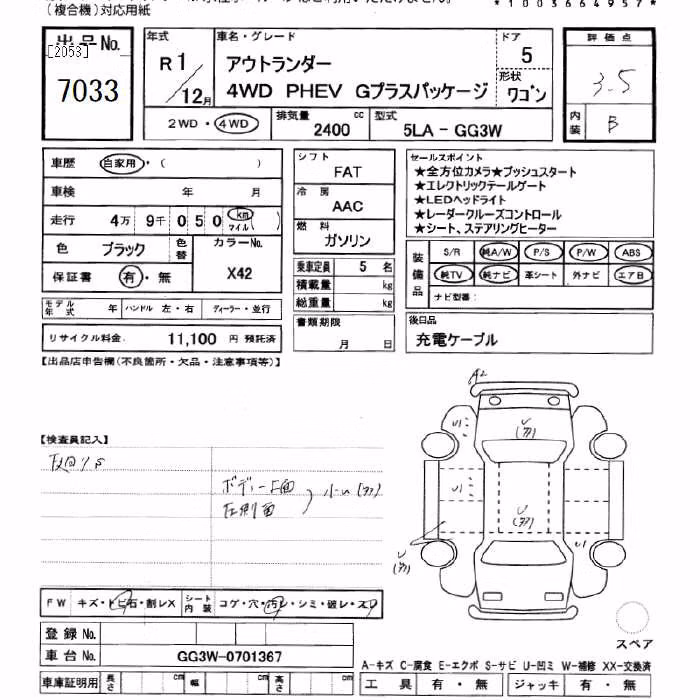 (複合機)対応用紙
*1003664957*
出品No.
[2053]
7033
年式
R1/12月
車名・グレード
アウトランダー
4WD PHEV Gプラスパッケージ
ドア
5
形状
ワゴン
2WD・4WD
排気量
2400 cc
型式
5LA-GG3W
評価点
3.5
内装
B
車歴 自家用・( )
車検 年 月
走行 4万 9千 0 5 0 km マイル( )
色 ブラック 色替
カラーNo.
X42
保証書 有・無
モデル年式 年 ハンドル 左・右 ディーラー・並行
リサイクル料金: 11,100 円 預託済
シフト
FAT
冷房
AAC
燃料
ガソリン
乗車定員 5 名
積載量 kg
総重量 kg
書類期限
月 日
セールスポイント
★全方位カメラ★プッシュスタート
★エレクトリックテールゲート
★LEDヘッドライト
★レーダークルーズコントロール
★シート、ステアリングヒーター
装備品
S/R 純A/W P/S P/W ABS
純TV 純ナビ 革シート 外ナビ エアB
ナビ型番:
後日品
充電ケーブル
【出品店申告欄(不良箇所・欠品・注意事項等)】
【検査員記入】
ボディー上面
左側面
小U(多)
A2
U1
U
(多)
U1
U
(多)
U
(多)
U1
FW キズ・トビ石・割レX シート内装 コゲ・穴・汚レ・シミ・破レ・スレ
登録No.
車台No. GG3W-0701367
車庫証明用 長さ cm 幅 cm 高さ cm
スペア
A-キズ C-腐食 E-エクボ S-サビ U-凹ミ W-補修 XX-交換済
工具 有・無 ジャッキ 有・無